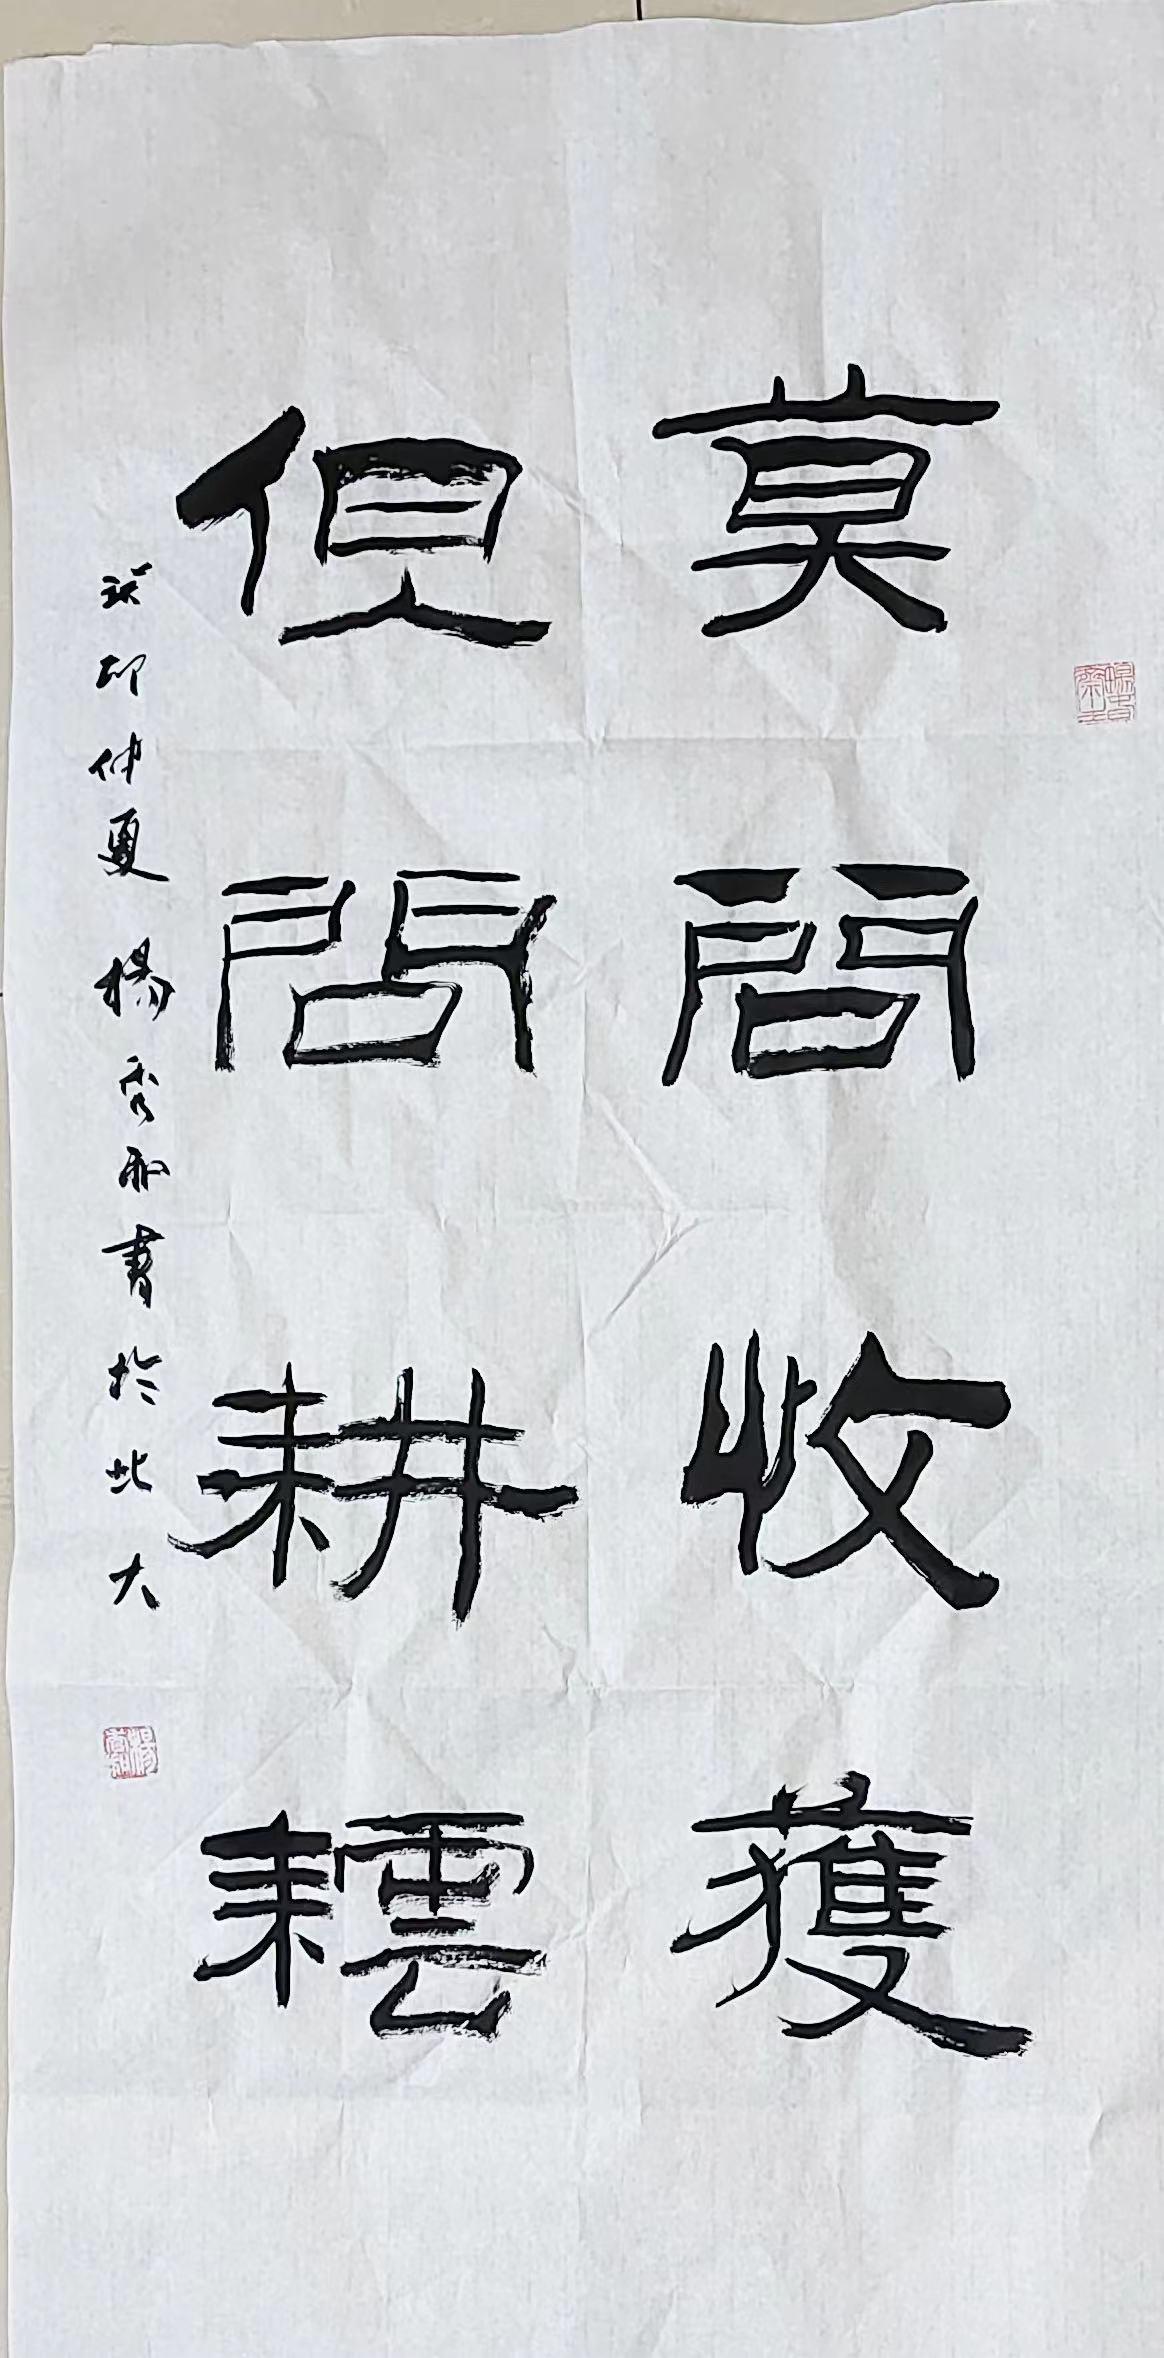 莫問收獲
但問耕耘
癸卯仲夏楊秀和書於北大